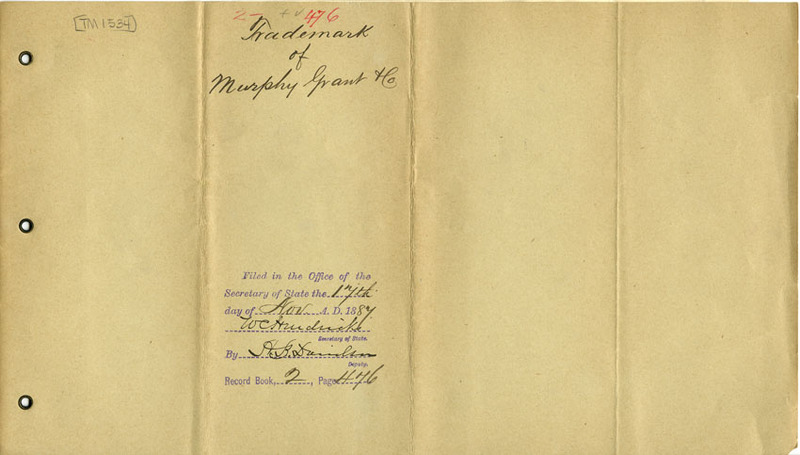 TM 1534
2 - 476
Trademark
of
Murphy Grant & Co
Filed in the Office of the
Secretary of State the 17th
day of Nov A. D. 1887
W C Hendricks
Secretary of State.
By
Deputy.
Record Book, 2, Page 476